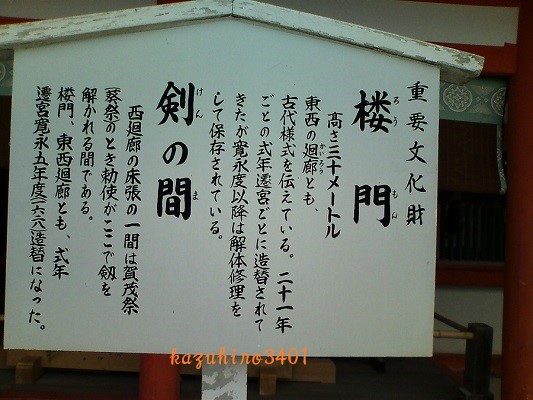 重要文化財
楼門
ろう
もん
高さ三十メートル
東西の廻廊とも、
かいろう
古代様式を伝えている。二十一年
ごとの式年遷宮ごとに造替されて
きたが寛永度以降は解体修理を
して保存されている。
剣の間
けん
ま
西廻廊の床張の一間は賀茂祭
(葵祭のとき勅使がここで剱を
解かれる間である。
楼門、東西廻廊とも、式年
遷宮寛永五年度(一六二八)造替になった。
kazuhiro3401